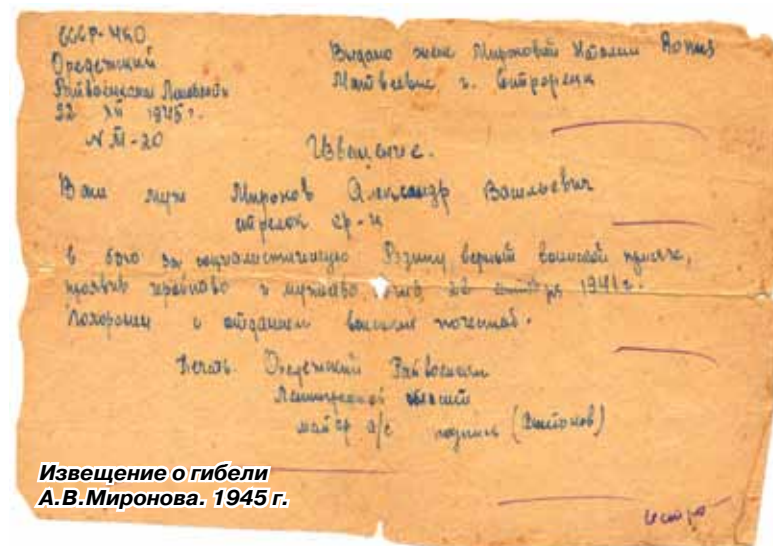 СССР-НКО
Оредежский
Райвоенкомат
22 XII 1945 г.
№ М-20
Выдано жене Мироновой Наталии
Матвеевне г.
Копия
Извещение.
Ваш муж Миронов Александр Васильевич
стрелок
в бою за социалистическую Родину, верный воинской присяге,
проявив геройство и мужество, погиб 22 1941 г.
Похоронен с отданием воинских почестей.
Печать. Оредежский Райвоенком
Ленинградской области
майор а/с подпись
Извещение о гибели
А.В.Миронова. 1945 г.